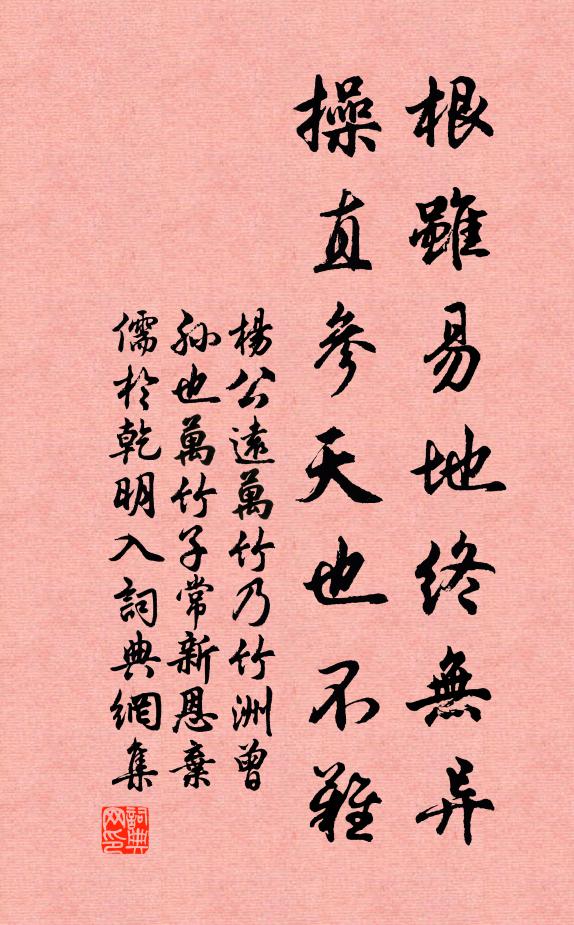 根雖易地終無异
操直參天也不難
楊公遠萬竹乃竹洲曾
孫也萬竹子常新恩棄
儒於乾明入詞典網集
詞典
网印